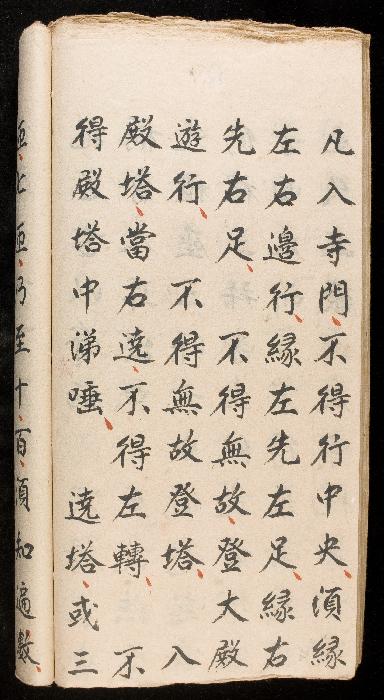 凡入寺門不得行中央湏緣
左右邊行緣左先左足緣右
先右足 不得無故登大殿
遊行 不得無故登塔 入
殿塔當右遶不得左轉 不
得殿塔中涕唾 遶塔或三
匝七匝乃至十百湏知遍數